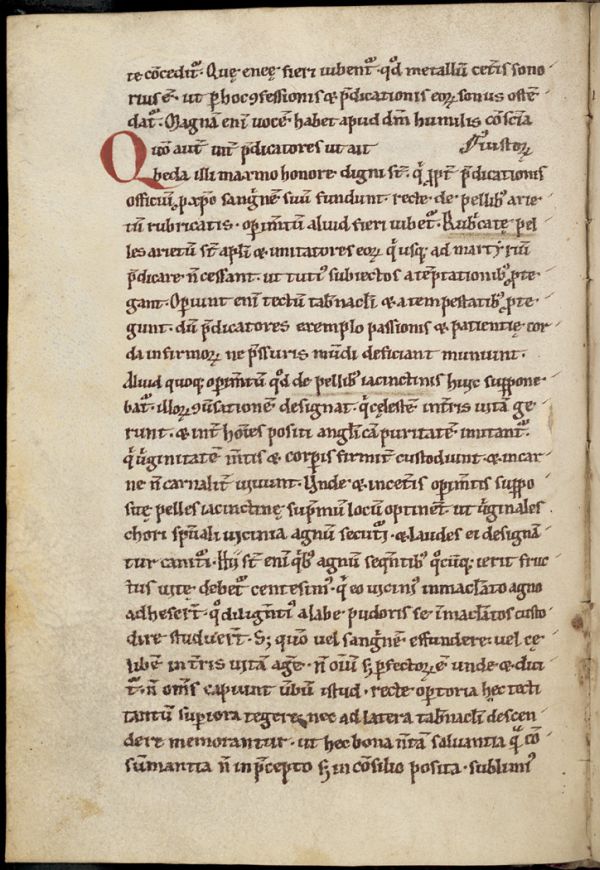 te c̄cedit᷑. Quę eneę fieri iubent᷑. qd̄ metallū cet̄is sono
rius ē. ut ꝑ hoc ꝯfessionis & p̄dicationis eoꝝ sonus ostē
dat᷑. Magnā enī uocē habet apud dm̄ humilis cōsc̄ia
Quō aut̄ p̄dicatores ut ait
Beda illi maximo honore digni st̄. q̄ ꝓpt̄ p̄dicationis
officiū ꝓ xp̄o sangnē suū fundunt. recte de pellib; arie
tū rubricatis. opim̄tū aliud fieri iubet᷑. Rubricatę pel
les arietū st̄ apl̄i & imitatores eoꝝ q̄ usq; ad martyriū
p̄dicare n̄ cessant. ut tuti᷒ subiectos a tēptationib; ꝓte
gant. Opiunt enī tectū tab̄nacl̄i & a tempestatib; ꝓte
gunt. dū p̄dicatores exemplo passionis & patientię cor
da infirmoꝝ ne p̄ssuris mūdi deficiant muniunt.
Aliud quoq; opim̄tū qd̄ de pellib; iacinctinis huic suppone
bat᷑. illoꝝ ꝯuersationē designat. q̄ cęlestē int̄ris uitā ge
runt. & int̄ hōīes positi angl̄icā puritatē imitant᷑.
q̄ uirginitatē m̄tis & corꝑis firmit̄ custodiunt & in car
ne n̄ carnalit̄ uiuunt. Vnde & in cet̄is opim̄tis suppo
sitę pelles iacinctinę sup̄mū locū optinēt. ut uirginales
chori spūali uicinia agnū secuturi. & laudes ei designā
tur canituri. Hii st̄ enī qb; agnū seqn̄tib; qcūq; ierit fruc
tus uitę debet᷑ centesim᷒. q̄ eo uicini᷒ inmacl̄ato agno
adheser̄t. qō diligenti᷒ a labe pudoris se inmacl̄atos custo
dire studuer̄t. S; quō uel sangnē effundere: uel cę
libēin t̄ris uitā agere. n̄ omniū s; ꝑfectoꝝ ē unde & dici
t᷑. n̄ om̄s capiunt ūbū istud. recte optoria hęc tecti
tantū supiora tegere. nec ad latera tab̄nacl̄i descen
dere memorantur. ut hec bona n̄ tā saluantia q̄ cō
sūmantia n̄ in p̄cepto s; in cōsilio posita. sublimi᷒